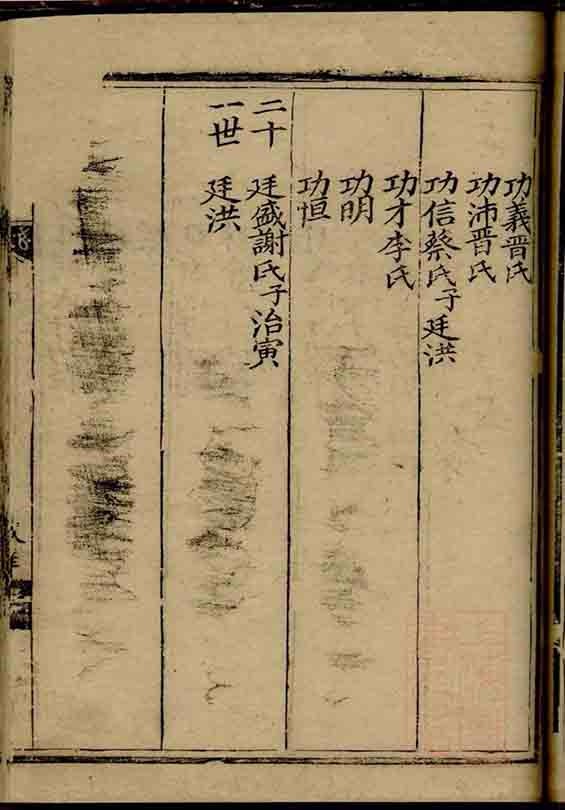 功義晋氏
功沛晋氏
功信蔡氏子廷洪
功才李氏
功明
功恒
二十 廷盛謝氏子治寅
一世 廷洪